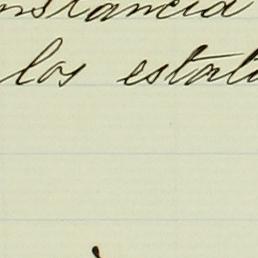 nstancia
los estatu